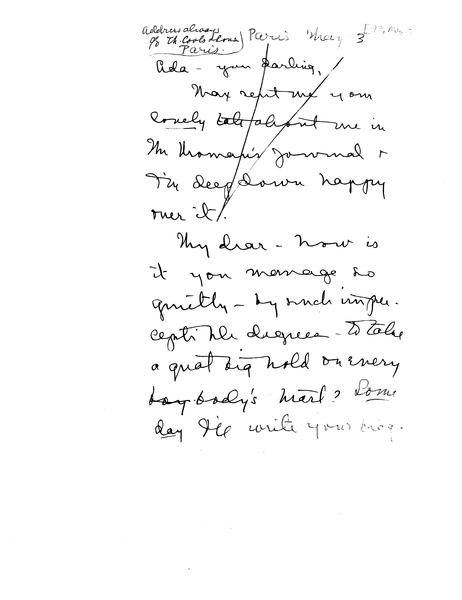 Address always
c/o Th. Cook & Sons
Paris.
Paris May 3
Ada - you darling,
Max sent me your
lovely talk about me in
The Woman's Journal &
I'm deep down happy
over it!
My dear - how is
it you manage so
quietly - by such imper-
ceptible degrees - to take
a great big hold on every
body's heart? Some
day I'll write your biog.